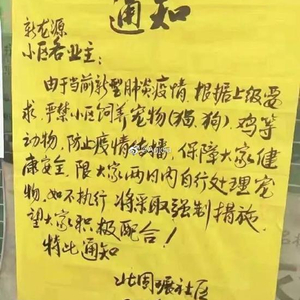 通知
新龙源
小区各业主：
由于当前新型肺炎疫情，根据上级要
求，严禁小区饲养宠物(猫、狗)、鸡等
动物，防止疫情传播，保障大家健
康安全，限大家两日内自行处理宠
物，如不执行，将采取强制措施。
望大家积极配合！
特此通知
社区